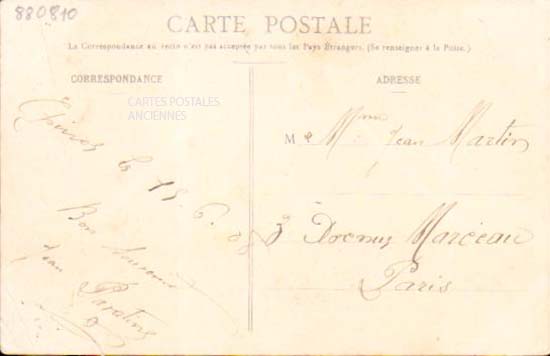 880810
CARTE POSTALE
La Correspondance au recto n'est pas acceptée par tous les Pays Étrangers. (Se renseigner à la Poste.)
CORRESPONDANCE
CARTES POSTALES
ANCIENNES
le 15.6.08
Bon Souvenir
Jean
ADRESSE
M e Mme Jean Martin
3 Avenue Marceau
Paris